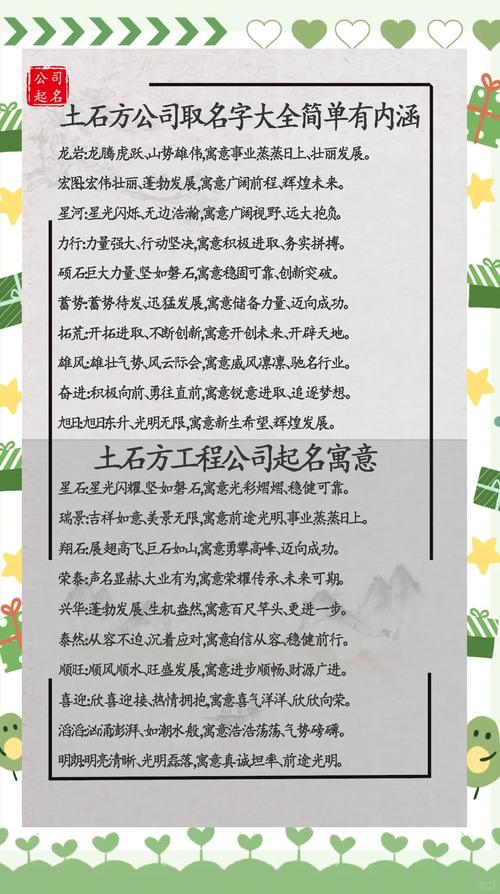 公司
起名
土石方公司取名字大全简单有内涵
龙岩:龙腾虎跃、山势雄伟,寓意事业蒸蒸日上、壮丽发展。
宏图:宏伟壮丽、蓬勃发展,寓意广阔前程、辉煌未来。
星河:星光闪烁、无边浩瀚,寓意广阔视野、远大抱负。
力行:力量强大、行动坚决,寓意积极进取、务实拼搏。
硕石:巨大力量、坚如磐石,寓意稳固可靠、创新突破。
蓄势:蓄势待发、迅猛发展,寓意储备力量、迈向成功。
拓荒:开拓进取、不断创新,寓意开创未来、开辟天地。
雄风:雄壮气势、风云际会,寓意威风凛凛、驰名行业。
奋进:积极向前、勇往直前,寓意锐意进取、追逐梦想。
旭日:旭日东升、光明无限,寓意新生希望、辉煌发展。
土石方工程公司起名寓意
星石:星光闪耀、坚如磐石,寓意光彩熠熠、稳健可靠。
瑞景:吉祥如意、美景无限,寓意前途光明、事业蒸蒸日上。
翔石:展翅高飞、巨石如山,寓意勇攀高峰、迈向成功。
荣泰:声名显赫、大业有为,寓意荣耀传承、未来可期。
兴华:蓬勃发展、生机盎然,寓意百尺竿头、更进一步。
泰然:从容不迫、沉着应对,寓意自信从容、稳健前行。
顺旺:顺风顺水、旺盛发展,寓意进步顺畅、财源广进。
喜迎:欣喜迎接、热情拥抱,寓意喜气洋洋、欣欣向荣。
滔滔:汹涌澎湃、如潮水般,寓意浩浩荡荡、气势磅礴。
明朗:明亮清晰、光明磊落,寓意真诚坦率、前途光明。